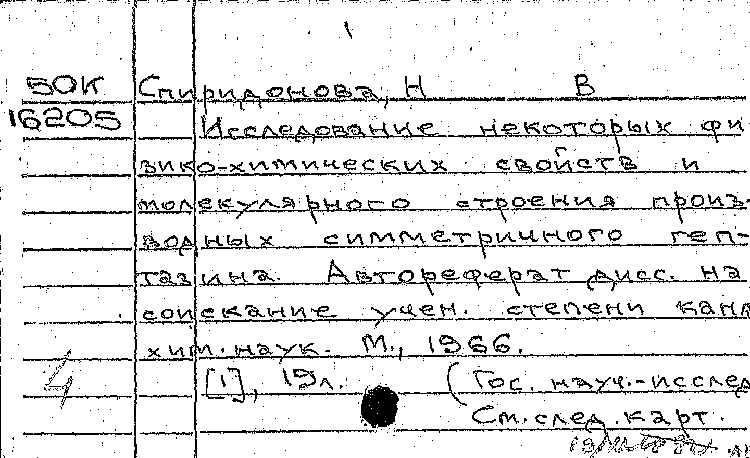 50К Спиридонова, Н В
16205 Исследование некоторых фи
зико-химических свойств и
молекулярного строения произ-
водных симметричного геп-
тазина. Автореферат дисс. на
соискание учен. степени канд
хим. наук. М., 1966.
4 [1], 19л. (Гос. науч.-исслед
См. след. карт.